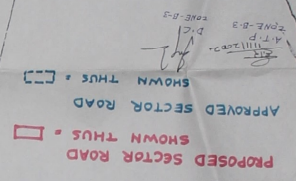 PROPOSED SECTOR ROAD
SHOWN THUS =
APPROVED SECTOR ROAD
SHOWN THUS =
11/1/2002.
A.T.P
ZONE-B-3
D.C
ZONE-B-3